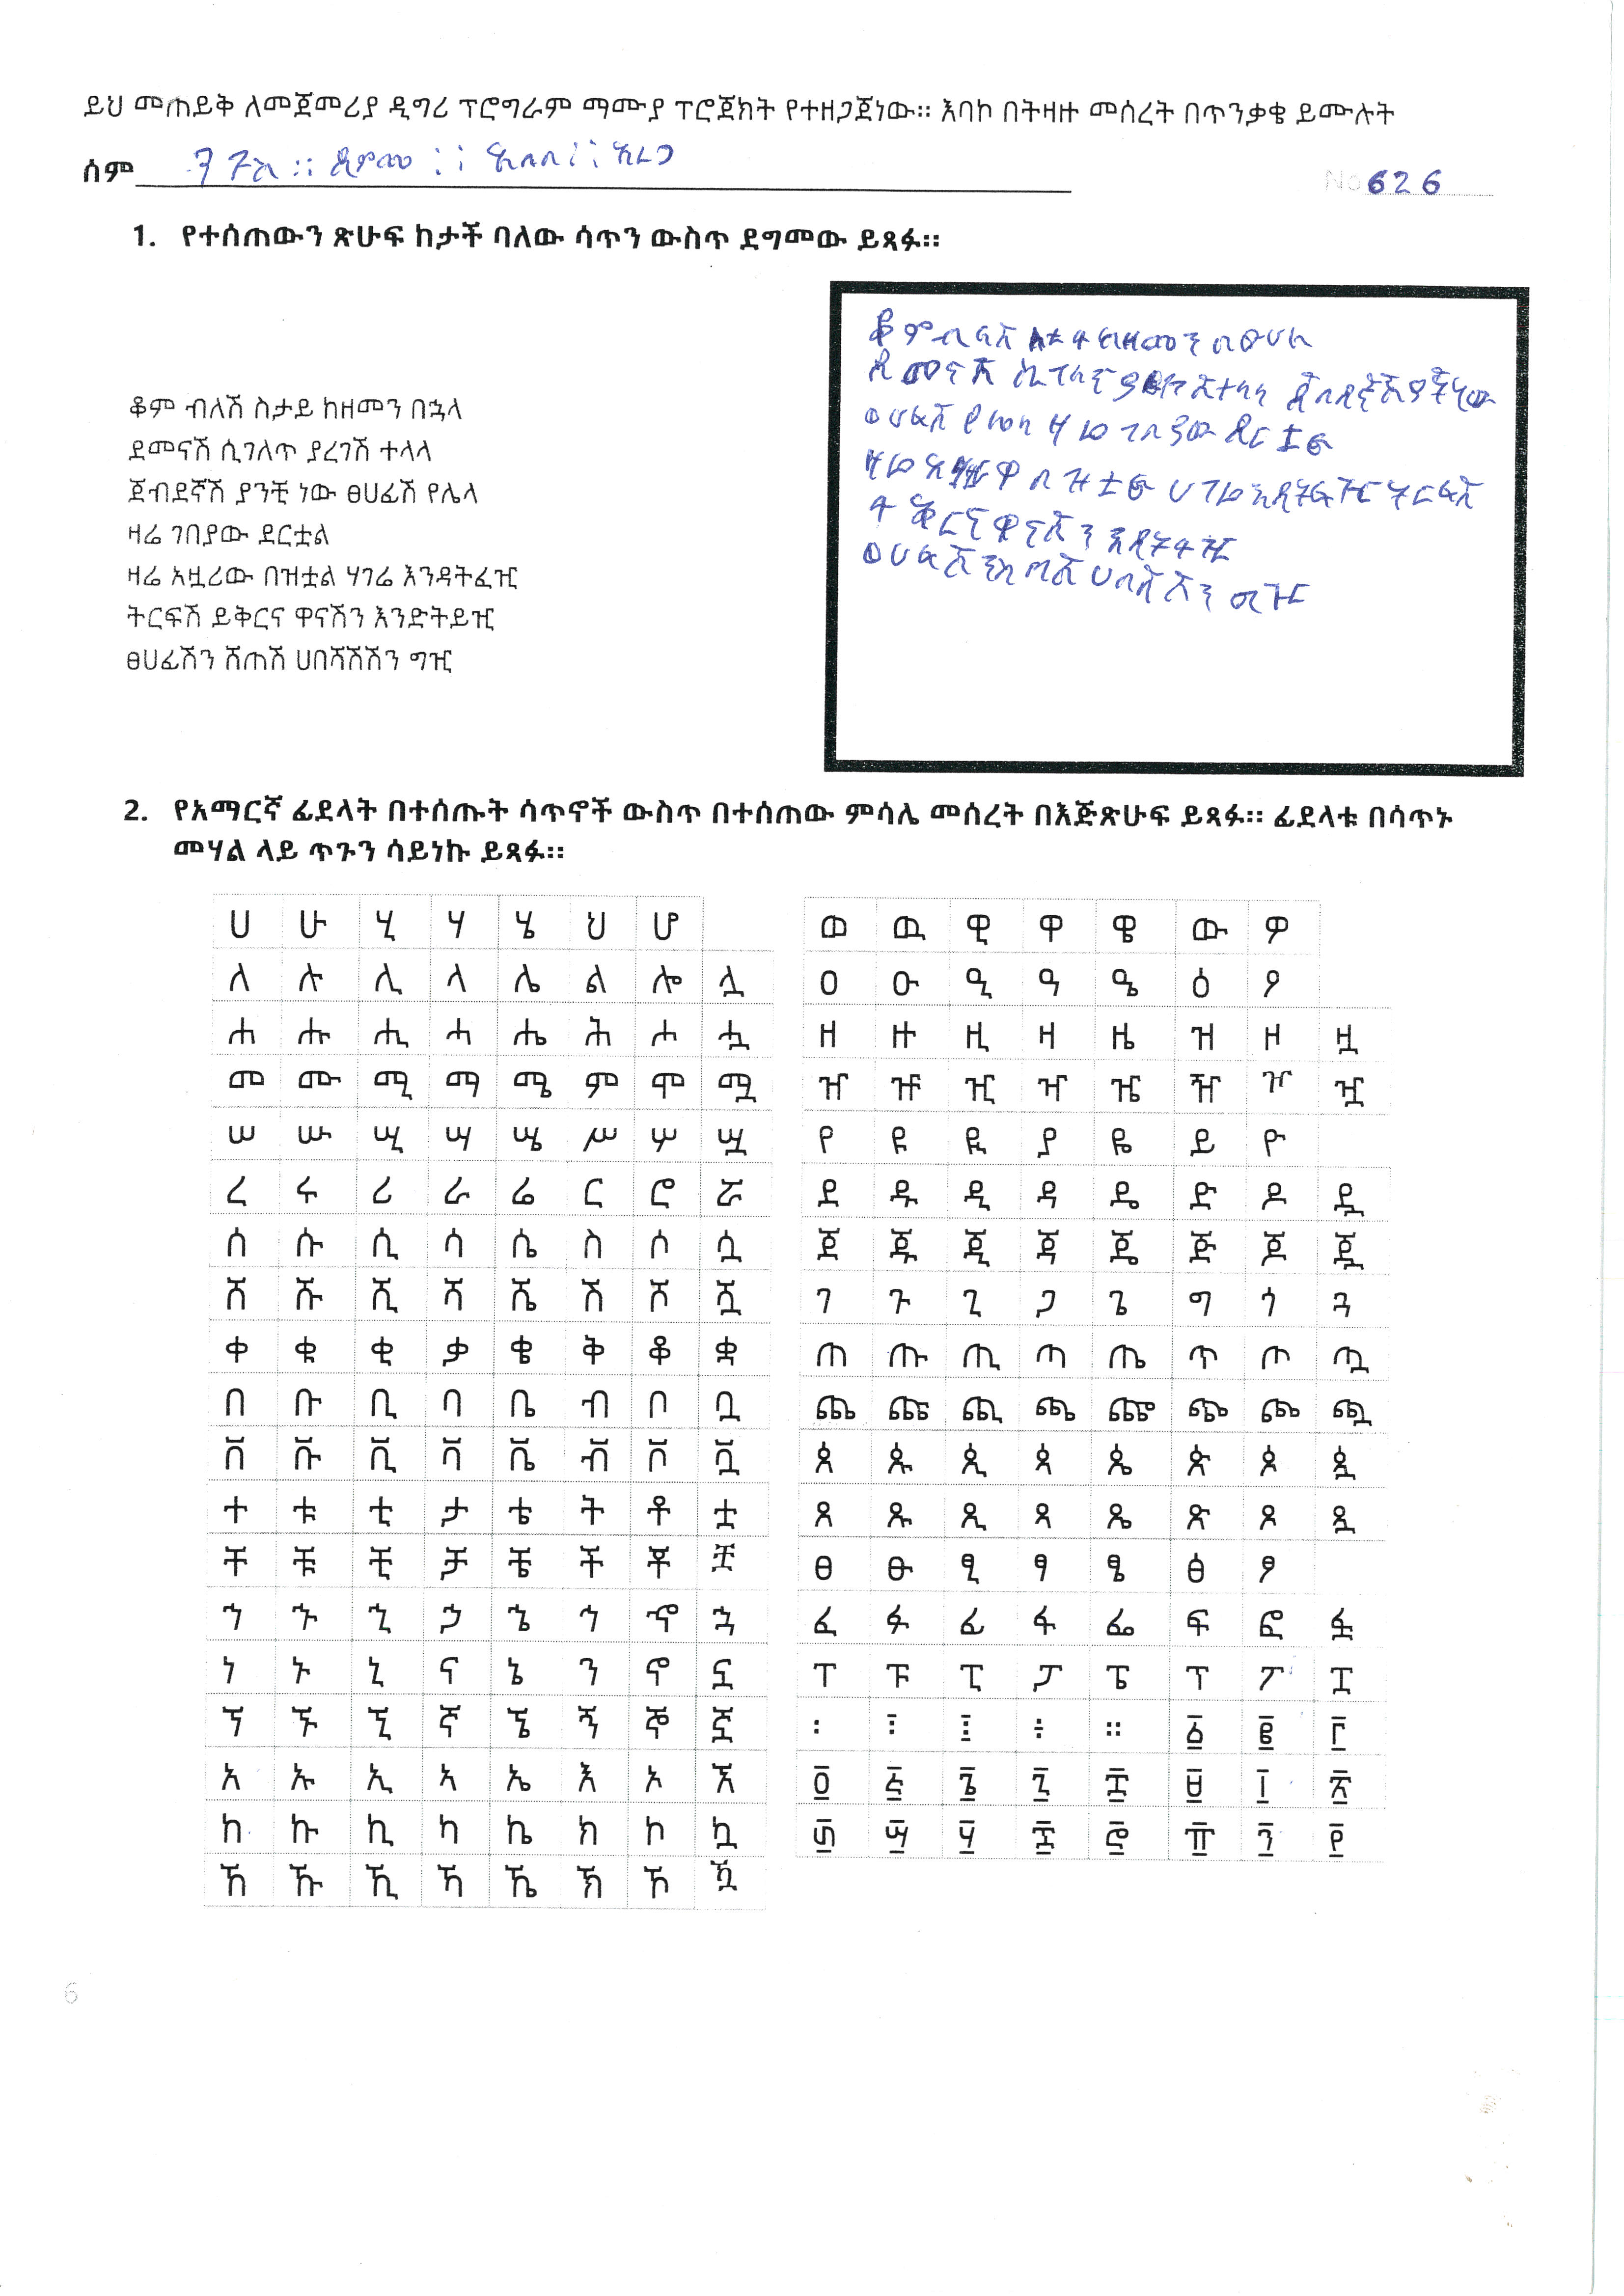 ይህ መጠይቅ ለመጀመሪያ ዲግሪ ፕሮግራም ማሙያ ፕሮጀክት የተዘጋጀነው። እባኮ በትዛዙ መሰረት በጥንቃቄ ይሙሉት
ሰም
No 626
1. የተሰጠውን ጽሁፍ ከታች ባለው ሳጥን ውስጥ ደግመው ይጻፉ።
ቆም ብለሽ ስታይ ከዘመን በኋላ
ደመናሽ ሲገለጥ ያረገሽ ተላላ
ጀብደኛሽ ያንቺ ነው ፀሀፊሽ የሌላ
ዛሬ ገበያው ደርቷል
ዛሬ አዟሪው በዝቷል ሃገሬ እንዳትፈዢ
ትርፍሽ ይቅርና ዋናሽን እንድትይዢ
ፀሀፊሽን ሸጠሽ ሀበሻሽሽን ግዢ
2. የአማርኛ ፊደላት በተሰጡት ሳጥኖች ውስጥ በተሰጠው ምሳሌ መሰረት በእጅጽሁፍ ይጻፉ። ፊደላቱ በሳጥኑ
መሃል ላይ ጥጉን ሳይነኩ ይጻፉ።
ሀ ሁ ሂ ሃ ሄ ህ ሆ
ለ ሉ ሊ ላ ሌ ል ሎ ሏ
ሐ ሑ ሒ ሓ ሔ ሕ ሖ ሗ
መ ሙ ሚ ማ ሜ ም ሞ ሟ
ሠ ሡ ሢ ሣ ሤ ሥ ሦ ሧ
ረ ሩ ሪ ራ ሬ ር ሮ ሯ
ሰ ሱ ሲ ሳ ሴ ስ ሶ ሷ
ሸ ሹ ሺ ሻ ሼ ሽ ሾ ሿ
ቀ ቁ ቂ ቃ ቄ ቅ ቆ ቋ
በ ቡ ቢ ባ ቤ ብ ቦ ቧ
ቨ ቩ ቪ ቫ ቬ ቭ ቮ ቯ
ተ ቱ ቲ ታ ቴ ት ቶ ቷ
ቸ ቹ ቺ ቻ ቼ ች ቾ ቿ
ኀ ኁ ኂ ኃ ኄ ኅ ኆ ኋ
ነ ኑ ኒ ና ኔ ን ኖ ኗ
ኘ ኙ ኚ ኛ ኜ ኝ ኞ ኟ
አ ኡ ኢ ኣ ኤ እ ኦ ኧ
ከ ኩ ኪ ካ ኬ ክ ኮ ኳ
ኸ ኹ ኺ ኻ ኼ ኽ ኾ ዃ
ወ ዉ ዊ ዋ ዌ ው ዎ
ዐ ዑ ዒ ዓ ዔ ዕ ዖ
ዘ ዙ ዚ ዛ ዜ ዝ ዞ ዟ
ዠ ዡ ዢ ዣ ዤ ዥ ዦ ዧ
የ ዩ ዪ ያ ዬ ይ ዮ
ደ ዱ ዲ ዳ ዴ ድ ዶ ዷ
ጀ ጁ ጂ ጃ ጄ ጅ ጆ ጇ
ገ ጉ ጊ ጋ ጌ ግ ጎ ጓ
ጠ ጡ ጢ ጣ ጤ ጥ ጦ ጧ
ጨ ጩ ጪ ጫ ጬ ጭ ጮ ጯ
ጰ ጱ ጲ ጳ ጴ ጵ ጶ ጷ
ጸ ጹ ጺ ጻ ጼ ጽ ጾ ጿ
ፀ ፁ ፂ ፃ ፄ ፅ ፆ
ፈ ፉ ፊ ፋ ፌ ፍ ፎ ፏ
ፐ ፑ ፒ ፓ ፔ ፕ ፖ ፗ
፡ ፣ ፤ ፥ ። ፩ ፪ ፫
፬ ፭ ፮ ፯ ፰ ፱ ፲ ፳
፴ ፵ ፶ ፷ ፸ ፹ ፺ ፻
6